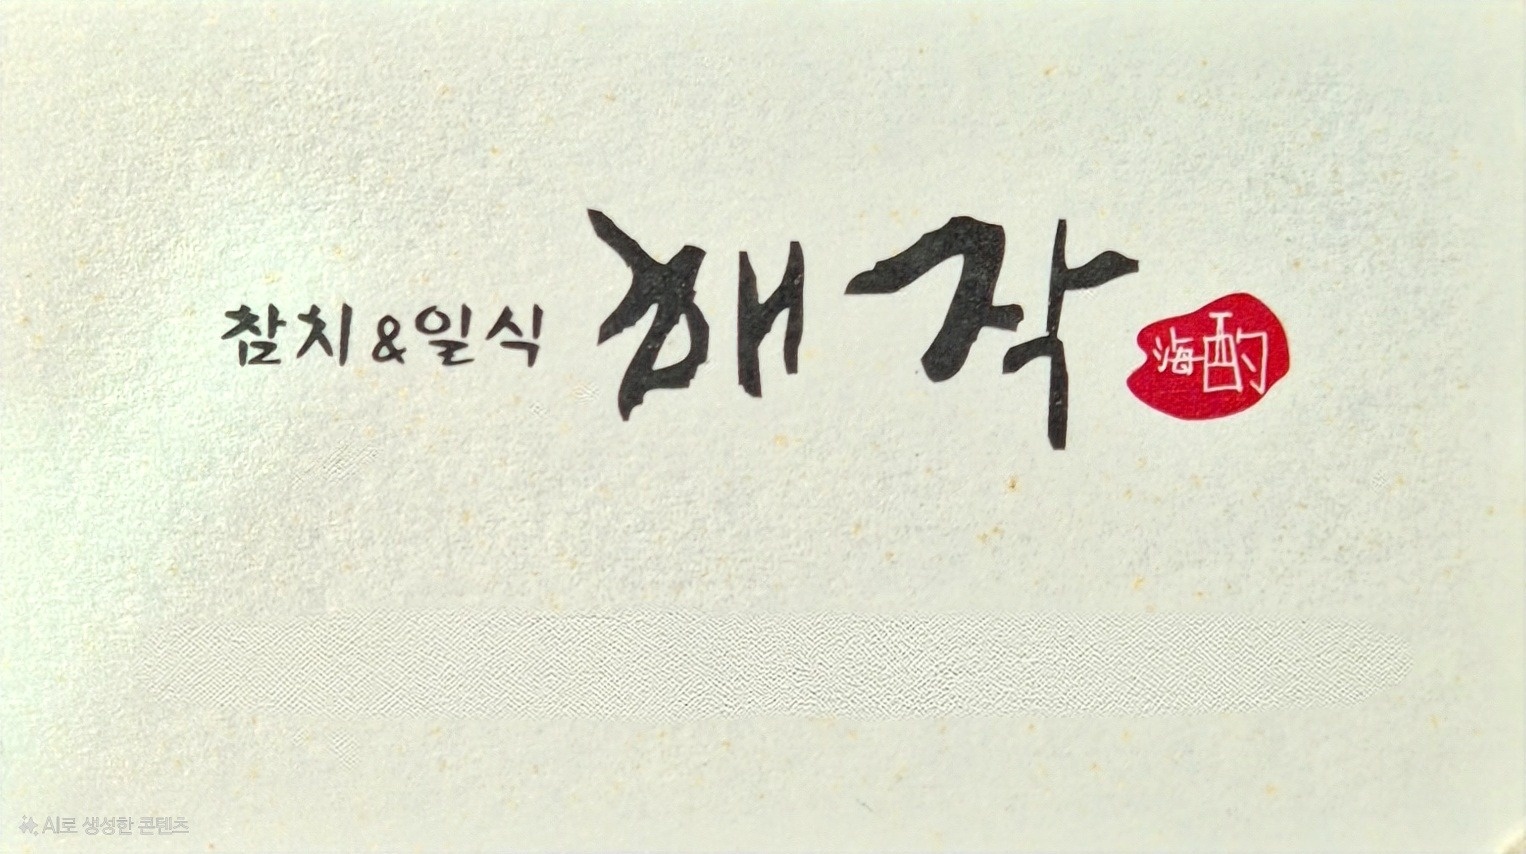 참치&일식 해작 海酌
AI로 생성한 콘텐츠